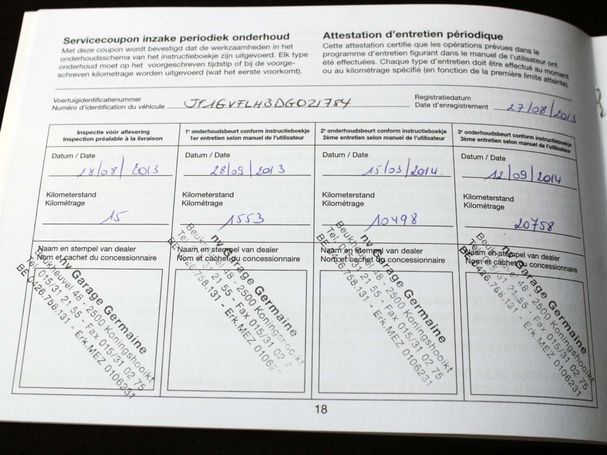 Servicecoupon inzake periodiek onderhoud
Met deze coupon wordt bevestigd dat de werkzaamheden in het
onderhoudsschema van het instructieboekje zijn uitgevoerd. Elk type
onderhoud moet op het voorgeschreven tijdstip of bij de voorge-
schreven kilometrage worden uitgevoerd (wat het eerste voorkomt).
Attestation d'entretien périodique
Cette attestation certifie que les opérations prévues dans le
programme d'entretien figurant dans le manuel de l'utilisateur ont
été effectuées. Chaque type d'entretien doit être effectué au moment
ou au kilométrage spécifié (en fonction de la première limite atteinte).
Voertuigidentificatienummer
Numéro d'identification du véhicule
JF1GVFLH3DG021784
Registratiedatum
Date d'enregistrement
27/08/2013
Inspectie vóór aflevering
Inspection préalable à la livraison
1e onderhoudsbeurt conform instructieboekje
1er entretien selon manuel de l'utilisateur
2e onderhoudsbeurt conform instructieboekje
2ème entretien selon manuel de l'utilisateur
3e onderhoudsbeurt conform instructieboekje
3ème entretien selon manuel de l'utilisateur
Datum / Date
Datum / Date
Datum / Date
Datum / Date
18/08/2013
28/09/2013
15/03/2014
12/09/2014
Kilometerstand
Kilométrage
Kilometerstand
Kilométrage
Kilometerstand
Kilométrage
Kilometerstand
Kilométrage
15
1553
10498
20758
Naam en stempel van dealer
Nom et cachet du concessionnaire
Naam en stempel van dealer
Nom et cachet du concessionnaire
Naam en stempel van dealer
Nom et cachet du concessionnaire
Naam en stempel van dealer
Nom et cachet du concessionnaire
nv Garage Germaine
Beukheuvel 48 - 2500 Koningshooikt
Tel. 015/31 21 55 - Fax 015/31 02 75
BE 0426.758.131 - Erk.MEZ 0106231
nv Garage Germaine
Beukheuvel 48 - 2500 Koningshooikt
Tel. 015/31 21 55 - Fax 015/31 02
BE 0426.758.131 - Erk.MEZ 01062
nv Garage Germaine
Beukheuvel 48 - 2500 Koningshooikt
Tel. 015/31 21 55 - Fax 015/31 02 75
BE 0426.758.131 - Erk.MEZ 0106231
nv Garage Germaine
Beukheuvel 48 - 2500 Koningshooikt
Tel. 015/31 21 55 - Fax 015/31 02 75
BE 0426.758.131 - Erk.MEZ 0106231
18